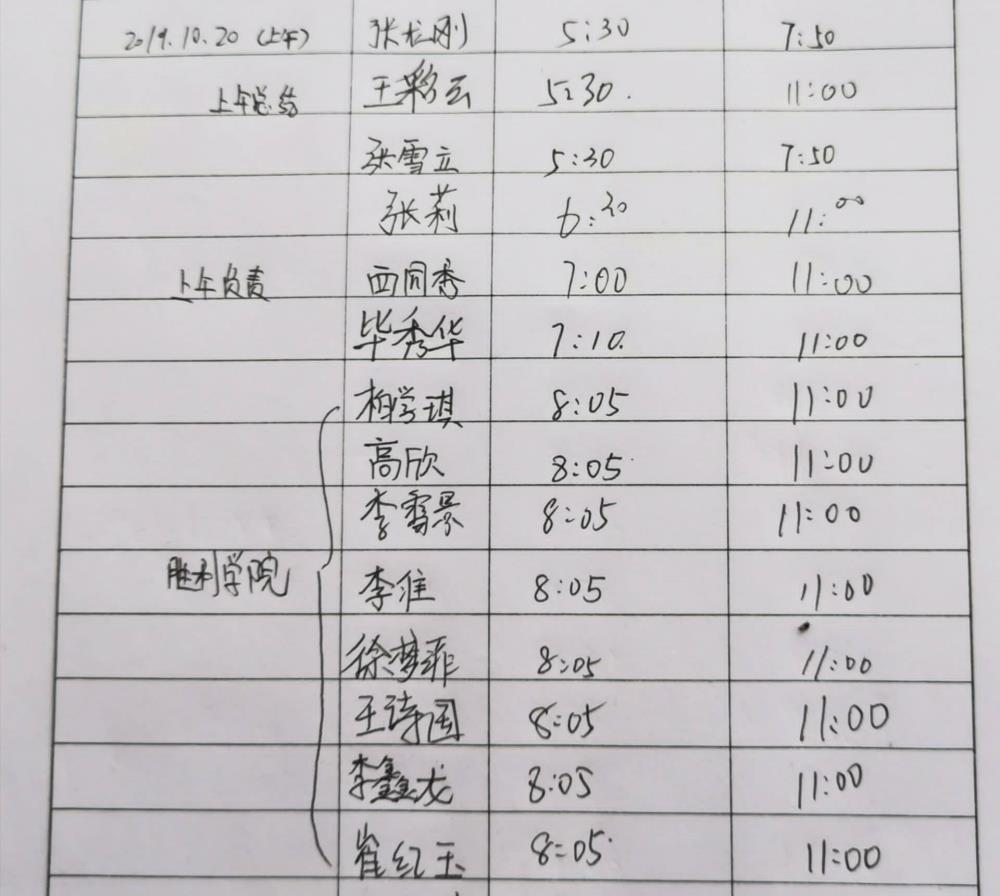 2019.10.20 (上午) 张龙刚 5:30 7:50
上午总结 王彩云 5:30. 11:00
张雪立 5:30 7:50
张莉 6:30 11:00
上午负责 西同秀 7:00 11:00
毕秀华 7:10. 11:00
柏学琪 8:05 11:00
高欣 8:05 11:00
李雪景 8:05 11:00
胜利学院 李淮 8:05 11:00
徐梦菲 8:05 11:00
王诗国 8:05 11:00
李鑫龙 8:05 11:00
崔红玉 8:05 11:00